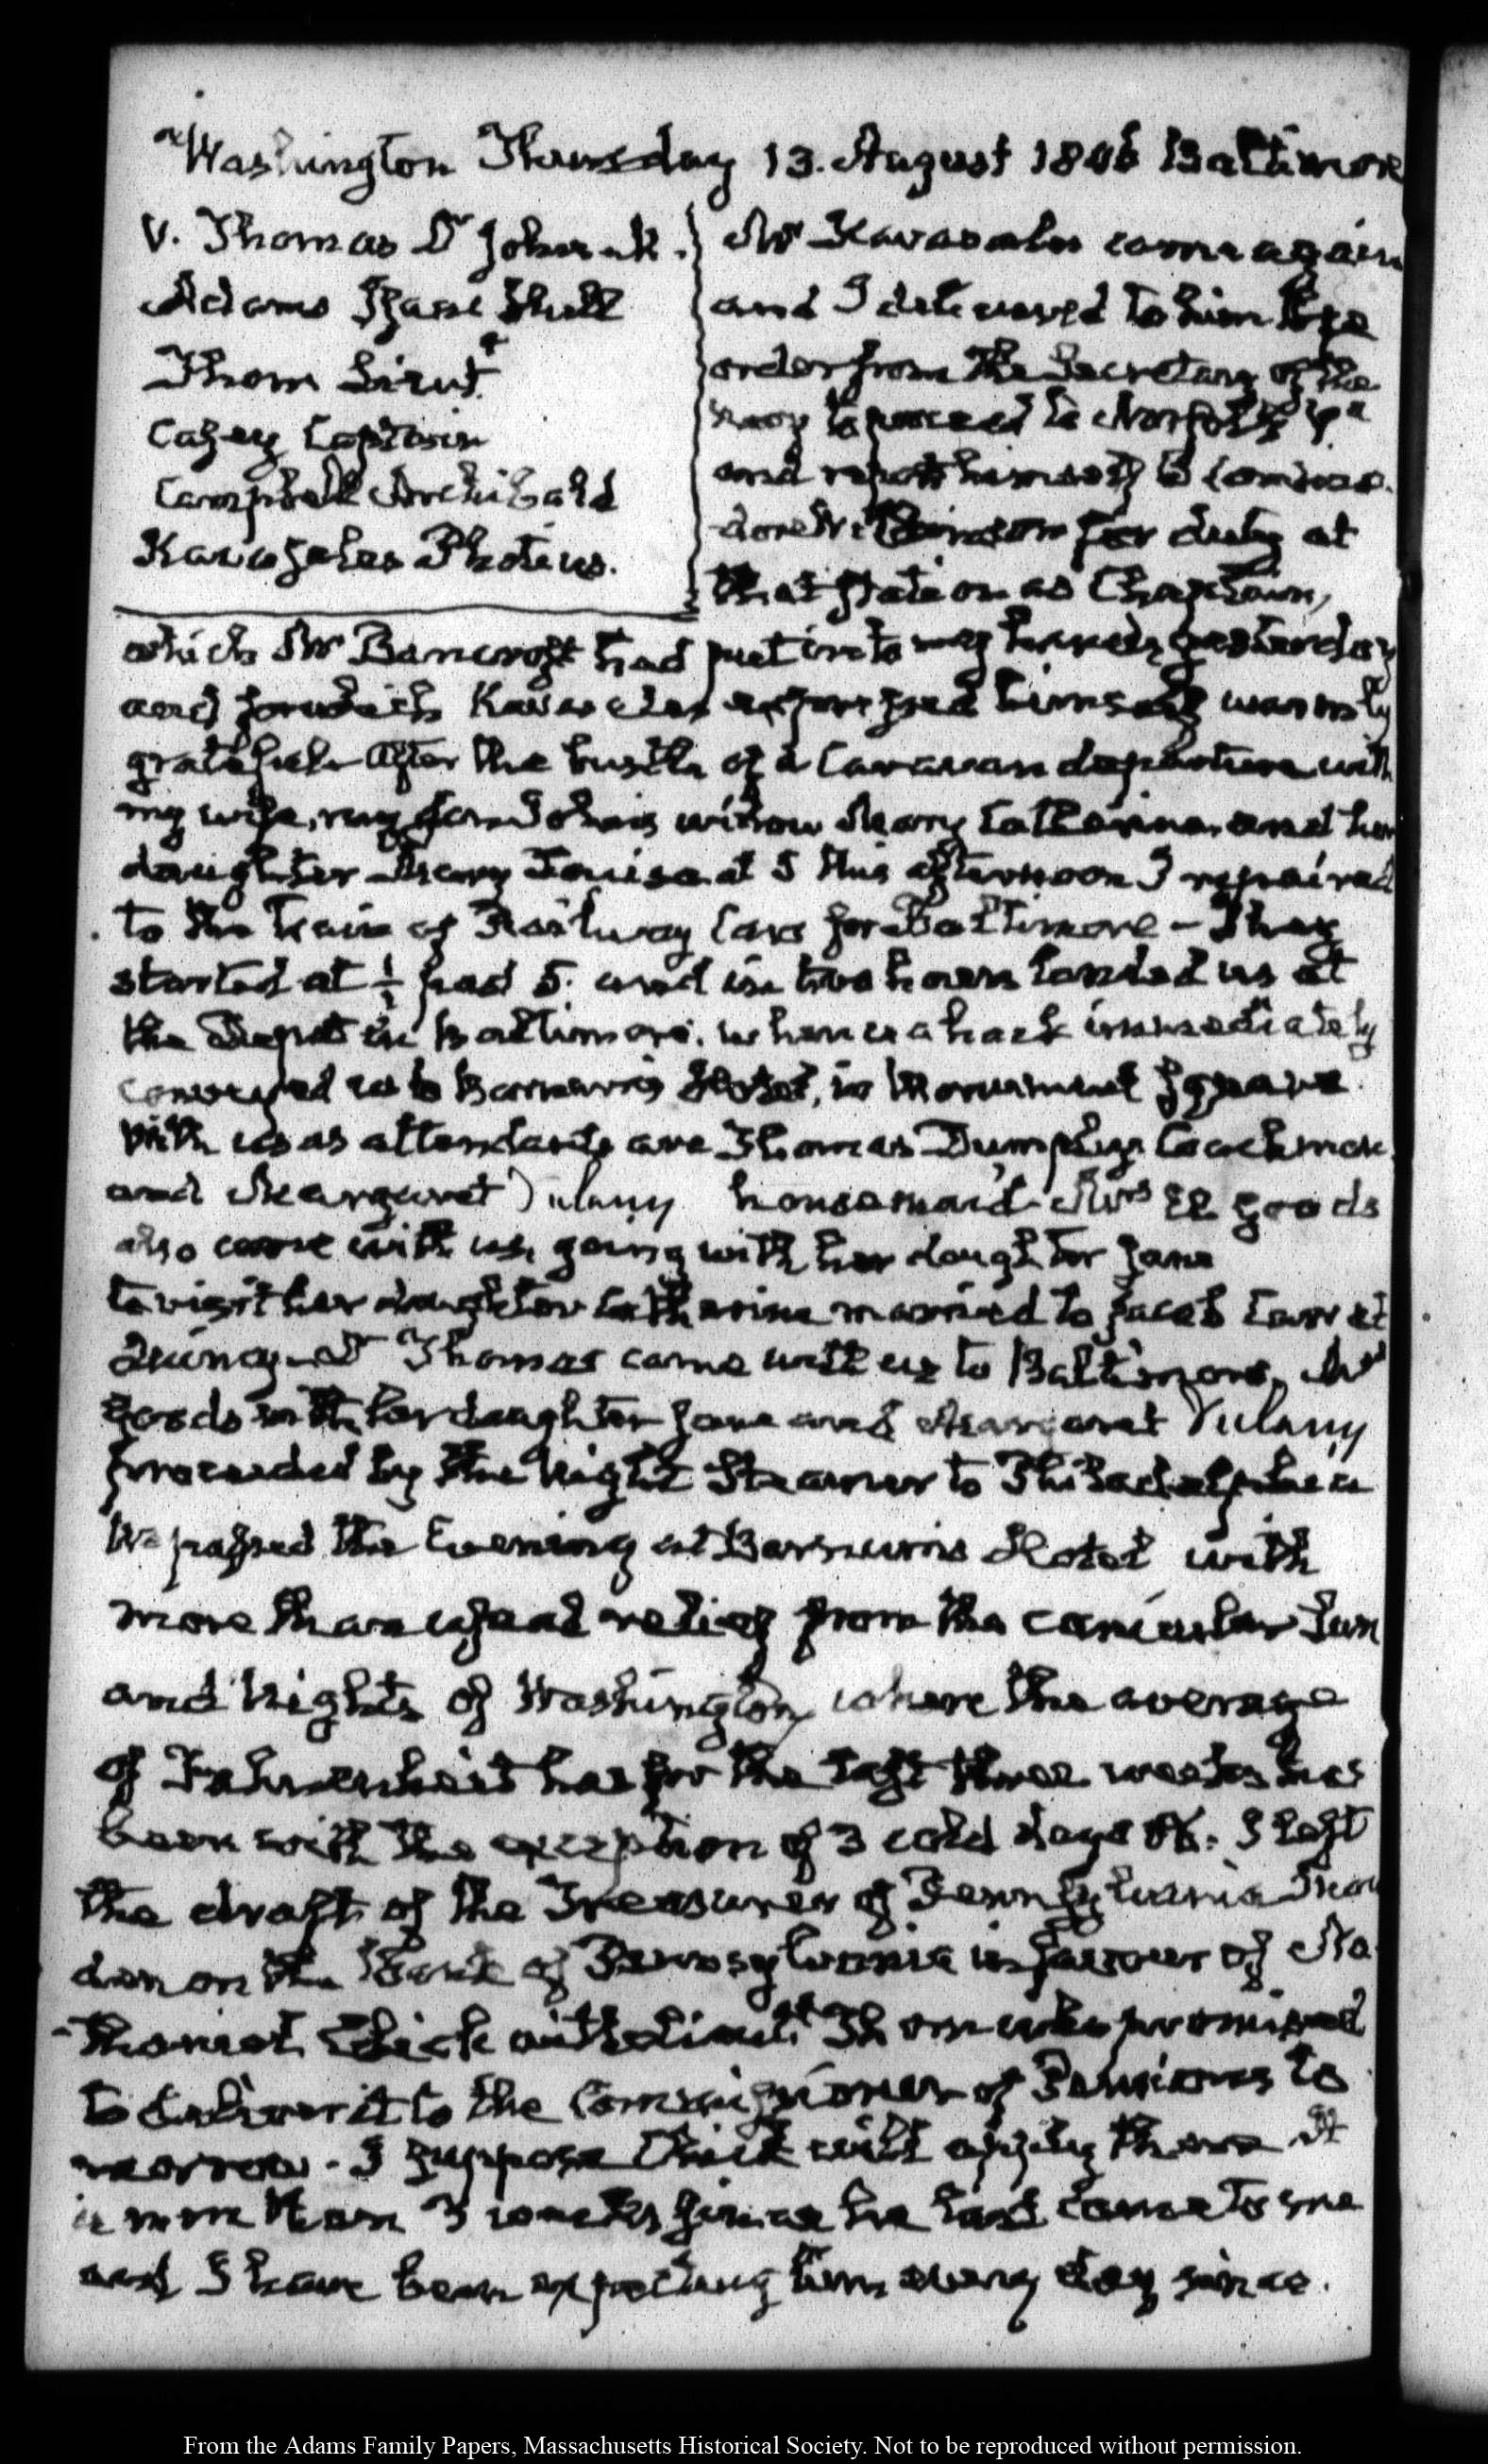 Washington Thursday 13. August 1846 Baltimore
V. Thomas Dr John H.
Adams Isaac Hull
Thom Lieut
Casey Captain
Campbell Archibald
Kavasales Photius.
Mr Kavasales came again
and I delivered to him the
order from the Secretary of the
navy to proceed to Norfolk Va
and report himself to Commo-
dore for duty at
that station as Chaplain,
which Mr Bancroft had put into my hands yesterday
and for which Kavasales expressed himself warmly
grateful. After the bustle of a Caravan departure with
my wife, my son John's widow Mary Catherine, and her
daughter Mary Louisa at 5 this afternoon I repaired
to the train of Railway Cars for Baltimore – They
started at ½ past 5. and in two hours landed us at
the Depot in Baltimore. whence a hack immediately
conveyed us to Barnum's Hotel, in Monument Square.
With us as attendants are Thomas Dumphy Coachman
and Margaret Dulany housemaid. Mrs goods
also came with us, going with her daughter Jane
to visit her daughter Catherine married to Jacob Carr at
Quincy. Dr Thomas came with us to Baltimore, Mrs
goods with her daughter Jane and Margaret Dulany
proceeded by the Night Steamer to Philadelphia
We passed the Evening at Barnum's Hotel with
more than usual relief from the canicular Sun
and Nights of Washington, where the average
of Fahrenheit has for the last three weeks has
been with the exception of 3 cold days 86. I left
the draft of the Treasurer of Pennsylvania
on the Bank of Pennsylvania in favour of Na-
thaniel Chick with Lieut Thom who promised
to deliver it to the Commissioner of Pensions to
morrow. I suppose Chick will apply there It
is more than 3 weeks since he last came to me
and I have been expecting him every day since.
From the Adams Family Papers, Massachusetts Historical Society. Not to be reproduced without permission.